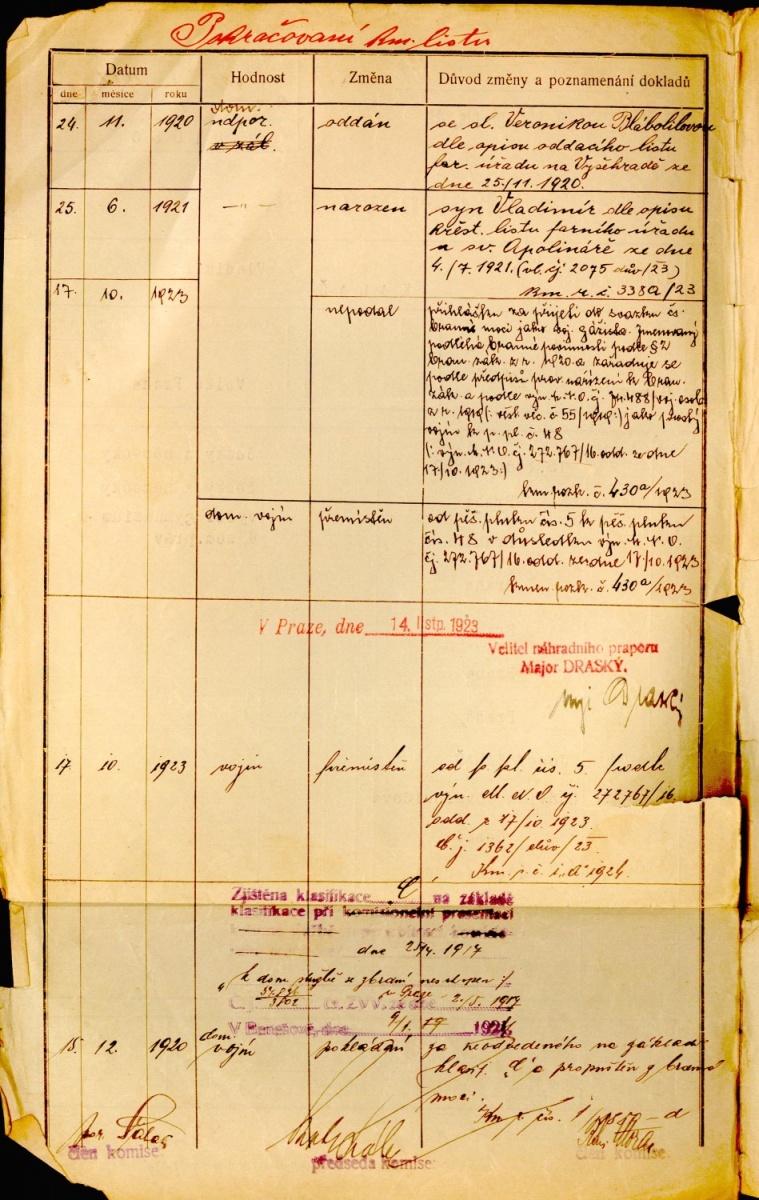 Pokračování km. listu
Datum
Hodnost
Změna
Důvod změny a poznamenání dokladů
dne měsíce roku
24. 11. 1920 dom. ndpor. v zál. oddán se sl. Veronikou Blábolilovou
dle opisu oddacího listu
far. úřadu na Vyšehradě ze
dne 25./11. 1920.
25. 6. 1921 -„- narozen syn Vladimír dle opisu
křest. listu farního úřadu
u sv. Apolináře ze dne
4./7. 1921. (vl. čj. 2075 dův/23)
km. r. č. 338a/23
17. 10. 1923 nepodal přihlášku za přijetí do svazku čs.
branné moci jako voj. gážista. Jmenovaný
podléhá branné povinnosti podle § 2
bran. zák. z r. 1920 a zařaduje se
podle předpisů prov. nařízení k bran.
zák. a podle výn. m. N. O. čj. 74.488/voj. osob
z r. 1919 (: věst. věc. č. 55/1919:) jako prostý
vojín k p. pl. č. 48
(: výn. m. N. O. čj. 272.767/16. odd. ze dne
17/10. 1923:)
km pozn. č. 430a/1923
dom. vojín přemístěn od pěš. pluku čís. 5 k pěš. pluku
čís. 48 v důsledku výn. m. N. O.
čj. 272.767/16. odd. ze dne 17/10. 1923
kmen pozn. č. 430a/1923
V Praze, dne 14. listp. 1923
Velitel náhradního praporu
Major DRASKÝ.
mjr Draský
17. 10. 1923 vojín přemístěn od p. pl. čís. 5 podle
výn. M. N. O. čj. 272767/16.
odd. z 17/10. 1923.
č. j. 1362/dův/23.
Km. p. č. 1 „a" 1924.
Zjištěna klasifikace „C" na základě
klasifikace při komisionelní presentaci
dne 25/4. 1917
„k dom. službě se zbraní neschopen"
v Praze
2./5. 1917
V Benešově, dne 9/1. 1924
15. 12. 1920 dom. vojín pokládán za neodvedeného na základě
klasif. „C" a propuštěn z branné
moci.
člen komise.
předseda komise.
člen komise.